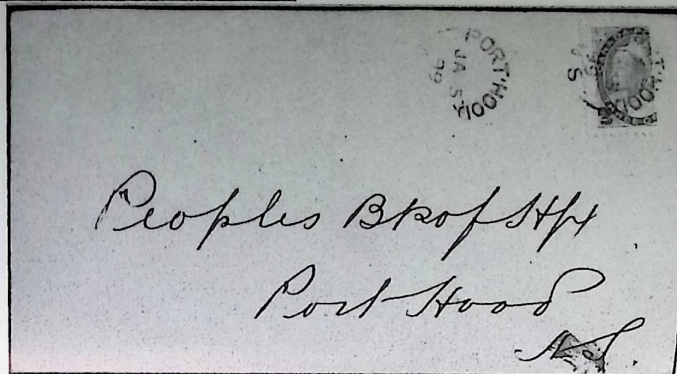 PORT HOOD
JA 5
99
Peoples Bk of Hfx
Port Hood
N S